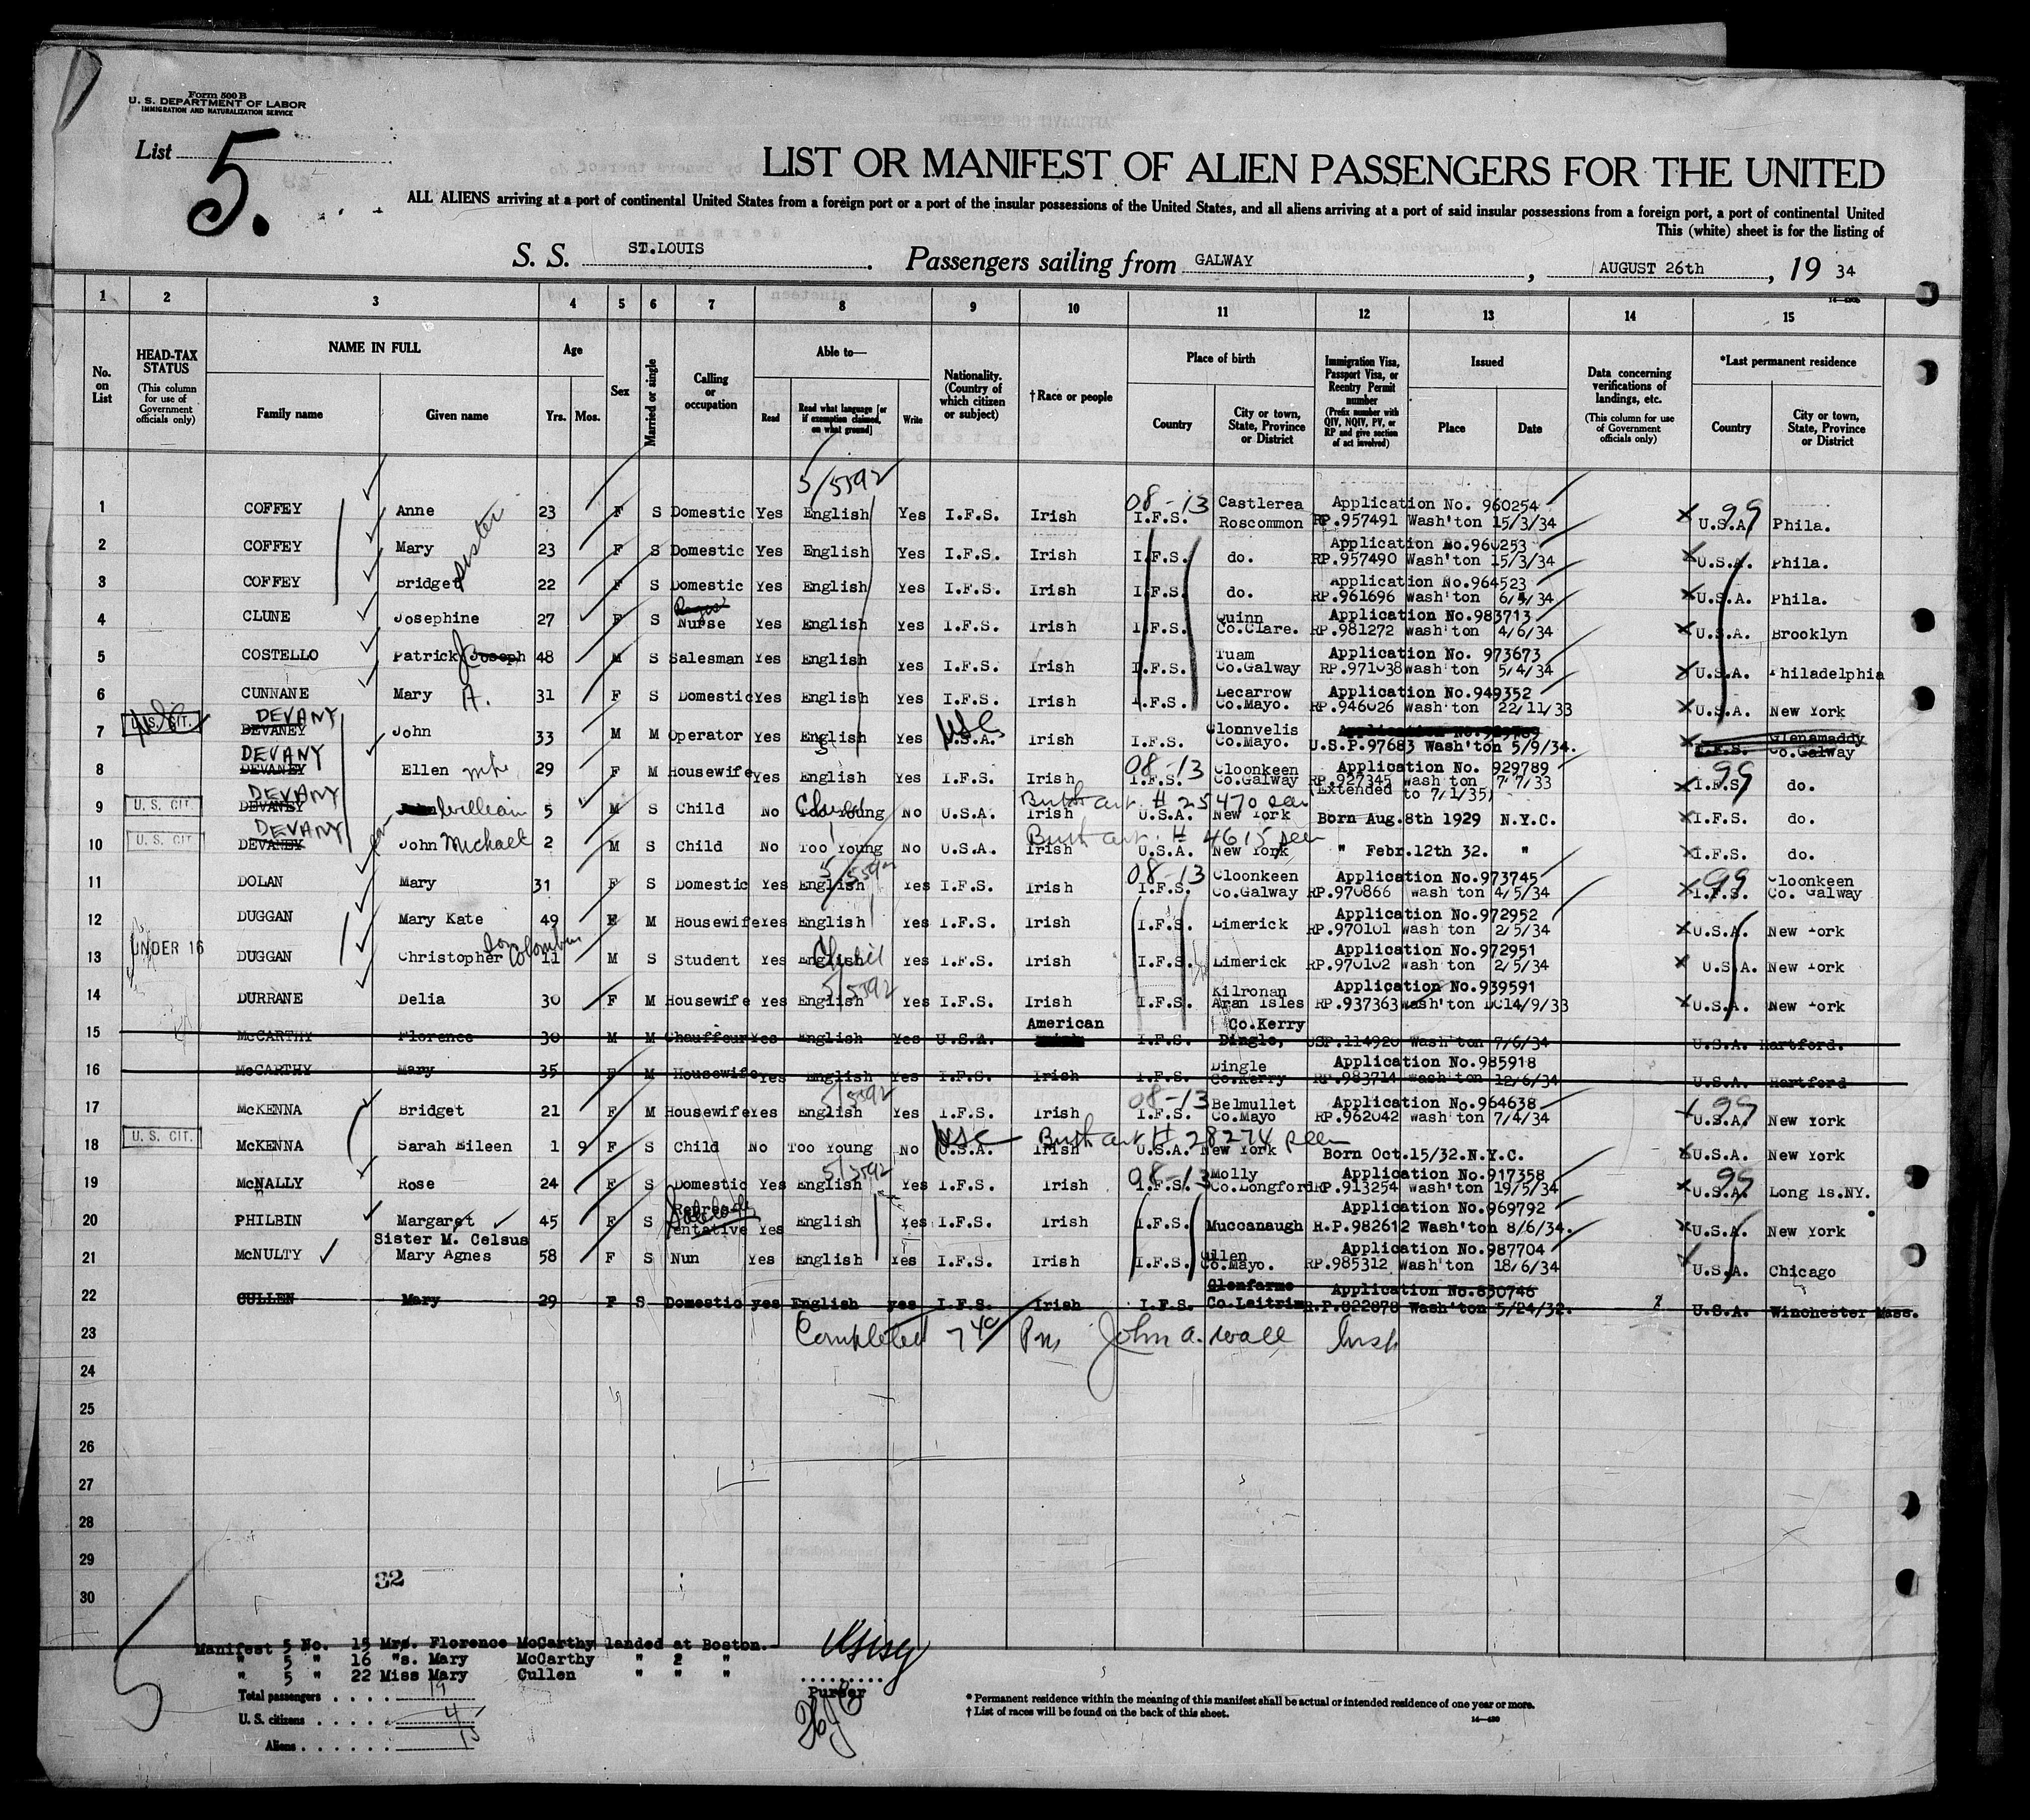 Form 500 B
U. S. DEPARTMENT OF LABOR
IMMIGRATION AND NATURALIZATION SERVICE
List 5.
LIST OR MANIFEST OF ALIEN PASSENGERS FOR THE UNITED
ALL ALIENS arriving at a port of continental United States from a foreign port or a port of the insular possessions of the United States, and all aliens arriving at a port of said insular possessions from a foreign port, a port of continental United
This (white) sheet is for the listing of
S. S. ST.LOUIS . Passengers sailing from GALWAY , AUGUST 26th , 19 34
1 2 3 4 5 6 7 8 9 10 11 12 13 14 15
No. on List
HEAD-TAX STATUS (This column for use of Government officials only)
NAME IN FULL Family name Given name
Age Yrs. Mos.
Sex
Married or single
Calling or occupation
Able to— Read Read what language [or if exemption claimed, on what ground] Write
Nationality. (Country of which citizen or subject)
†Race or people
Place of birth Country City or town, State, Province or District
Immigration Visa, Passport Visa, or Reentry Permit number (Prefix number with QIV, NQIV, PV, or RP and give section of act involved)
Issued Place Date
Data concerning verifications of landings, etc. (This column for use of Government officials only)
*Last permanent residence Country City or town, State, Province or District
5/5592
1 COFFEY Anne 23 F S Domestic Yes English Yes I.F.S. Irish 08-13 I.F.S. Castlerea Roscommon Application No. 960254 RP.957491 Wash'ton 15/3/34 99 U.S.A. Phila.
2 COFFEY Mary sister 23 F S Domestic Yes English Yes I.F.S. Irish I.F.S. do. Application No.960253 RP.957490 Wash'ton 15/3/34 U.S.A. Phila.
3 COFFEY Bridget 22 F S Domestic Yes English Yes I.F.S. Irish I.F.S. do. Application No.964523 RP.961696 Wash'ton U.S.A. Phila.
4 CLUNE Josephine 27 F S Nurse Yes English Yes I.F.S. Irish I.F.S. Quinn Co.Clare. Application No.983713 RP.981272 Wash'ton 4/6/34 U.S.A. Brooklyn
5 COSTELLO Patrick Joseph J 48 M S Salesman Yes English Yes I.F.S. Irish I.F.S. Tuam Co.Galway Application No. 973673 RP.971038 Wash'ton 5/4/34 U.S.A. Philadelphia
6 CUNNANE Mary A. 31 F S Domestic Yes English Yes I.F.S. Irish I.F.S. Lecarrow Co.Mayo. Application No.949352 RP.946026 Wash'ton 22/11/33 U.S.A. New York
7 U.S. CIT. DEVANEY DEVANY John 33 M M Operator Yes English Yes USC U.S.A. Irish I.F.S. Clonnvelis Co.Mayo. U.S.P.97683 Wash'ton 5/9/34. I.F.S. Glenamaddy Co.Galway
8 DEVANEY DEVANY Ellen wife 29 F M Housewife Yes English Yes I.F.S. Irish 08-13 I.F.S. Cloonkeen Co.Galway Application No. 929789 RP.927345 Wash'ton 7/7/33 (Extended to 7/1/35) 99 I.F.S. do.
9 U. S. CIT. DEVANEY DEVANY John William 5 M S Child No Too Young Child No U.S.A. Irish Birth cert. # 25470 seen U.S.A. New York Born Aug.8th 1929 N.Y.C. I.F.S. do.
10 U. S. CIT. DEVANEY DEVANY John Michael 2 M S Child No Too Young No U.S.A. Irish Birth cert. # 4615 seen U.S.A. New York " Febr.12th 32. " I.F.S. do.
11 DOLAN Mary 31 F S Domestic Yes English 5/5592 Yes I.F.S. Irish 08-13 I.F.S. Cloonkeen Co.Galway Application No.973745 RP.970866 Wash'ton 4/5/34 99 I.F.S. Cloonkeen Co. Galway
12 DUGGAN Mary Kate 49 F M Housewife Yes English Yes I.F.S. Irish I.F.S. Limerick Application No.972952 RP.970101 Wash'ton 2/5/34 U.S.A. New York
13 UNDER 16 DUGGAN Christopher son Columbus 11 M S Student Yes English Child Yes I.F.S. Irish I.F.S. Limerick Application No.972951 RP.970102 Wash'ton 2/5/34 U.S.A. New York
14 DURRANE Delia 30 F M Housewife Yes English 5/5592 Yes I.F.S. Irish I.F.S. Kilronan Aran Isles Application No.939591 RP.937363 Wash'ton DC14/9/33 U.S.A. New York
15 McCARTHY Florence 30 M M Chauffeur Yes English Yes U.S.A. American I.F.S. Co.Kerry Dingle, USP.114920 Wash'ton 7/6/34 U.S.A. Hartford.
16 McCARTHY Mary 35 F M Housewife Yes English Yes I.F.S. Irish I.F.S. Dingle Co.Kerry Application No.985918 RP.983714 Wash'ton 12/6/34 U.S.A. Hartford
17 McKENNA Bridget 21 F M Housewife Yes English 5/5592 Yes I.F.S. Irish 08-13 I.F.S. Belmullet Co.Mayo Application No.964638 RP.962042 Wash'ton 7/4/34 99 U.S.A. New York
18 U. S. CIT. McKENNA Sarah Eileen 1 9 F S Child No Too Young No USC U.S.A. Irish Birth cert # 28274 seen U.S.A. New York Born Oct.15/32.N.Y.C. U.S.A. New York
19 McNALLY Rose 24 F S Domestic Yes English 5/5592 Yes I.F.S. Irish 08-13 I.F.S. Molly Co.Longford Application No.917358 RP.913254 Wash'ton 19/5/34 99 U.S.A. Long Is.NY.
20 PHILBIN Margaret 45 F S Representative Yes English Yes I.F.S. Irish I.F.S. Muccanaugh Application No.969792 R.P.982612 Wash'ton 8/6/34. U.S.A. New York
21 McNULTY Sister M. Celsus Mary Agnes 58 F S Nun Yes English Yes I.F.S. Irish I.F.S. Co.Mayo. Application No.987704 RP.985312 Wash'ton 18/6/34 U.S.A. Chicago
22 CULLEN Mary 29 F S Domestic yes English yes I.F.S. Irish I.F.S. Glenfarne Co.Leitrim Application No.830746 R.P.822878 Wash'ton 5/24/32. U.S.A. Winchester Mass.
23 Completed 7 40 Pm John A. Wall Insp
24
25
26
27
28
29
30
32
Manifest 5 No. 15 Mrs. Florence McCarthy landed at Boston.
" 5 " 16 "s. Mary McCarthy " 2 "
" 5 " 22 Miss Mary Cullen " " "
Purser
Total passengers 19
U. S. citizens 4
Aliens 15
* Permanent residence within the meaning of this manifest shall be actual or intended residence of one year or more.
† List of races will be found on the back of this sheet.